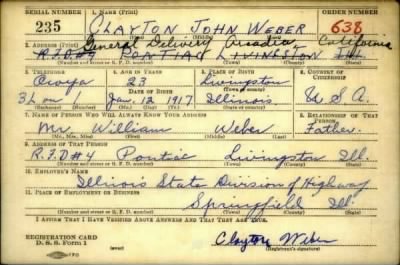 SERIAL NUMBER 1. NAME (Print) ORDER NUMBER
235 CLAYTON JOHN WEBER 638
General Delivery Arcadia California
2. ADDRESS (Print)
R.F.D.#4 PONTIAC LIVINGSTON Ill.
(Number and street or R. F. D. number) (Town) (County) (State)
3. TELEPHONE 4. AGE IN YEARS 5. PLACE OF BIRTH 6. COUNTRY OF CITIZENSHIP
23 Livingston
DATE OF BIRTH (Town or county)
Jan. 12, 1917 Illinois U.S.A.
(Exchange) (Number) (Mo.) (Day) (Yr.) (State or country)
7. NAME OF PERSON WHO WILL ALWAYS KNOW YOUR ADDRESS 8. RELATIONSHIP OF THAT PERSON
Mr. William Weber Father.
(Mr., Mrs., Miss) (First) (Middle) (Last)
9. ADDRESS OF THAT PERSON
R.F.D.#4 Pontiac Livingston Ill.
(Number and street or R. F. D. number) (Town) (County) (State)
10. EMPLOYER'S NAME
Illinois State Division of Highway
11. PLACE OF EMPLOYMENT OR BUSINESS
Springfield Ill.
(Number and street or R. F. D. number) (Town) (County) (State)
I AFFIRM THAT I HAVE VERIFIED ABOVE ANSWERS AND THAT THEY ARE TRUE.
REGISTRATION CARD
D. S. S. Form 1 Clayton Weber
(Registrant's signature)